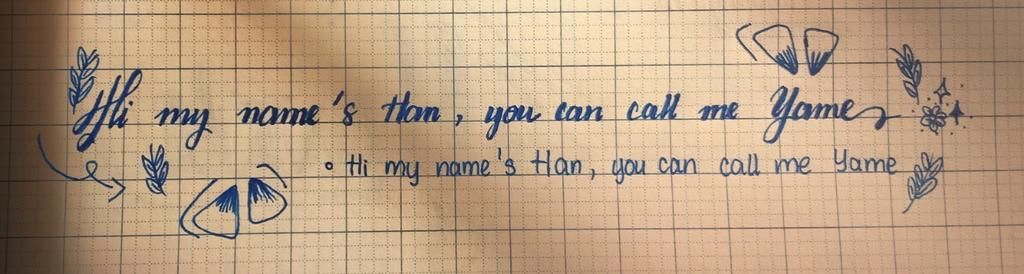 Hi my name's Han, you can call me Yame
Hi my name's Han, you can call me Yame